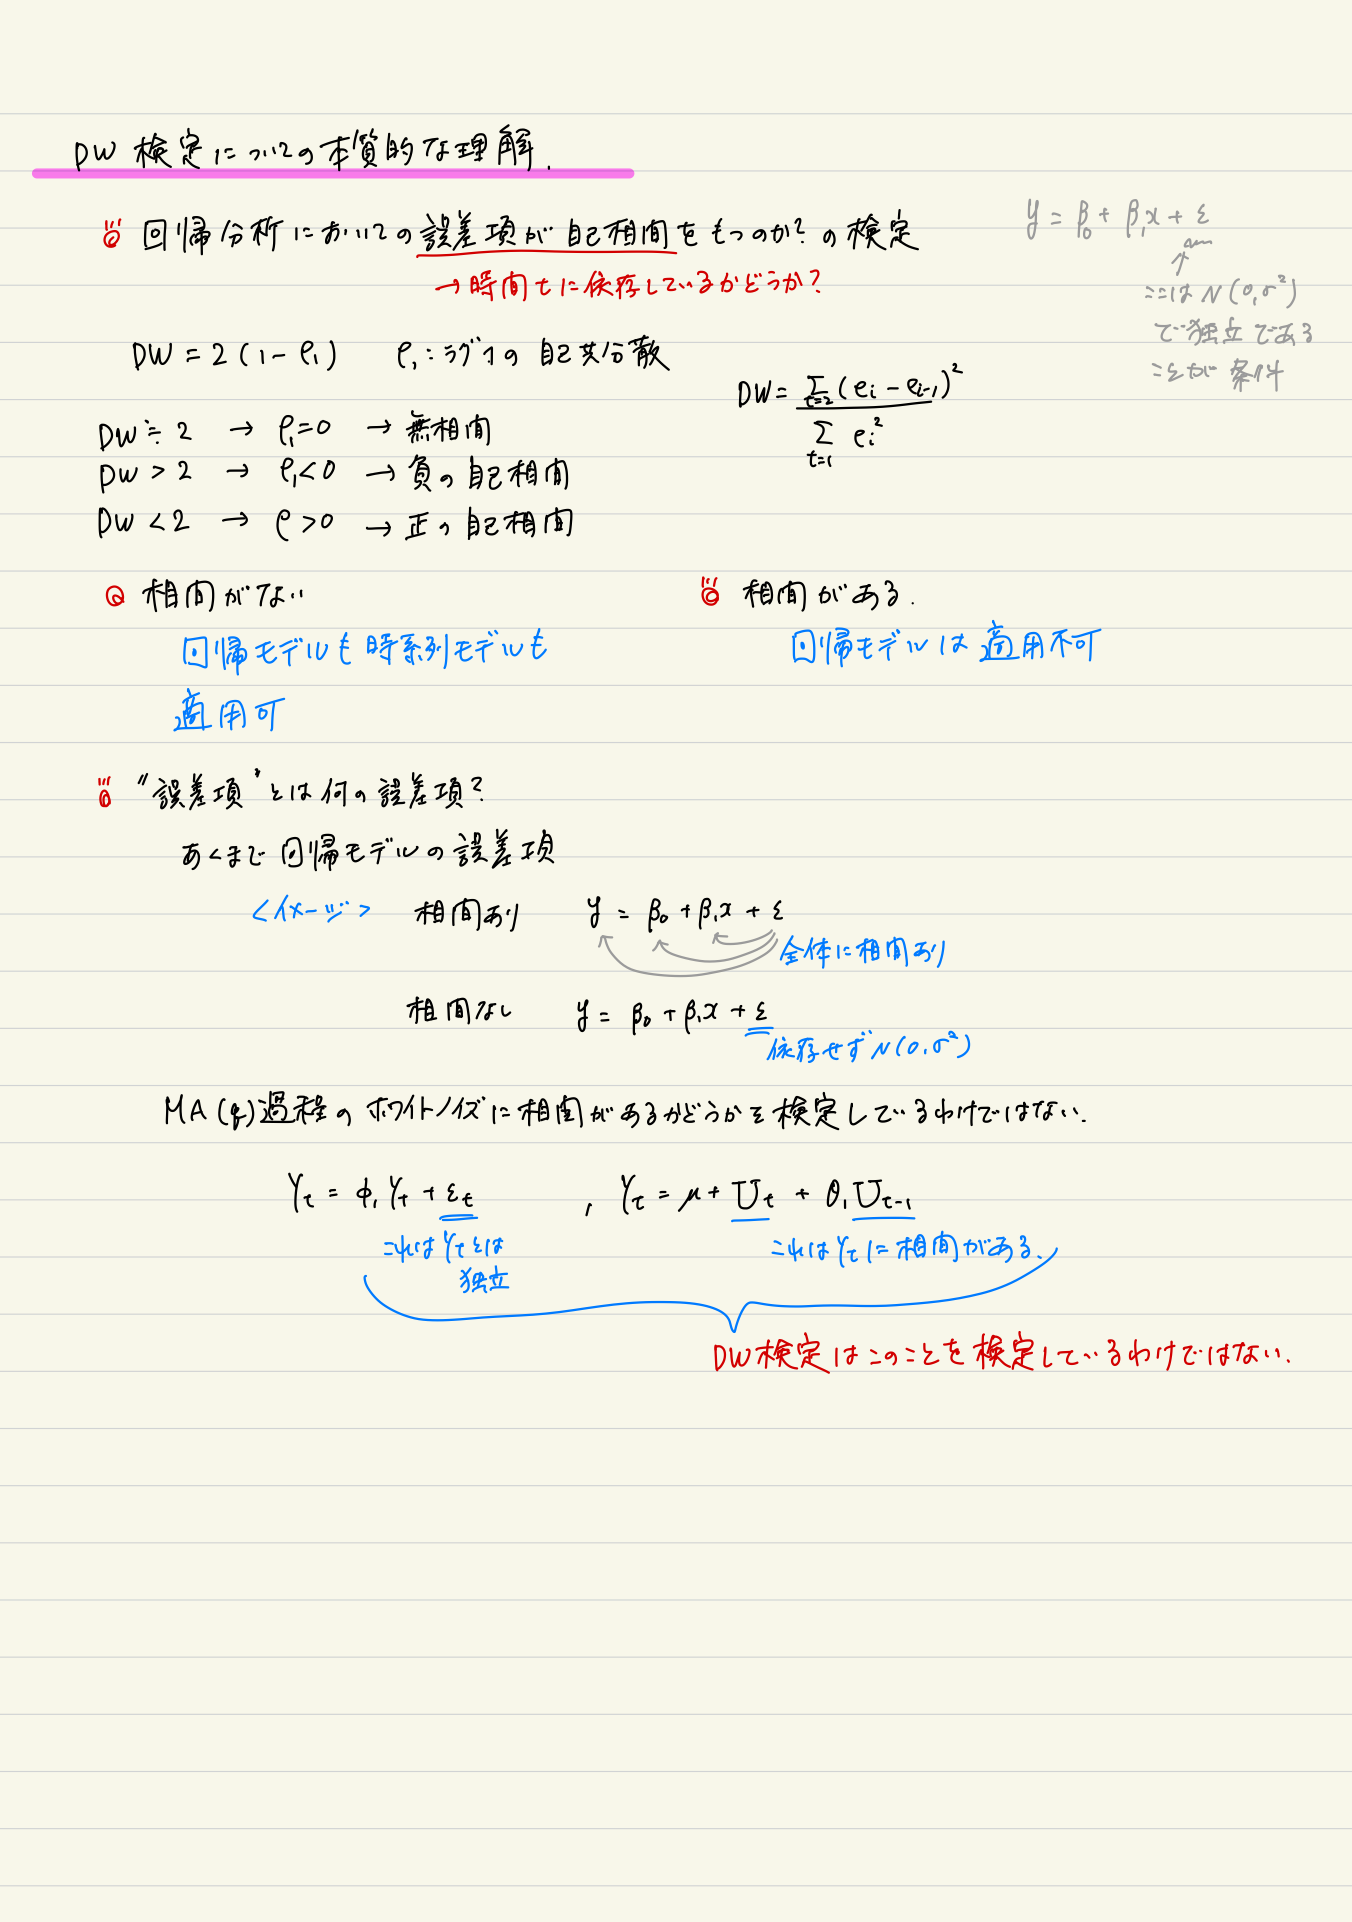 DW検定についての本質的な理解.
回帰分析においての誤差項が自己相関をもつのか?の検定
→時間tに依存しているかどうか?
y = β₀ + β₁x + ε
ここは N(0,σ²)
で独立である
ことが条件
DW = 2(1-ρ₁)  ρ₁:ラグ1の自己共分散
DW = Σ_{t=2}(e_i - e_{i-1})² / Σ_{t=1} e_i²
DW ≒ 2 → ρ₁=0 → 無相関
DW > 2 → ρ₁<0 → 負の自己相関
DW < 2 → ρ>0 → 正の自己相関
相関がない
回帰モデルも時系列モデルも
適用可
相関がある.
回帰モデルは適用不可
"誤差項"とは何の誤差項?
あくまで回帰モデルの誤差項
<イメージ> 相関あり y = β₀ + β₁x + ε
全体に相関あり
相関なし y = β₀ + β₁x + ε
依存せず N(0,σ²)
MA(q)過程のホワイトノイズに相関があるかどうかを検定しているわけではない.
Y_t = φ₁Y_t + ε_t , Y_t = μ + U_t + θ₁U_{t-1}
これはY_tとは
独立
これはY_tに相関がある.
DW検定はこのことを検定しているわけではない.